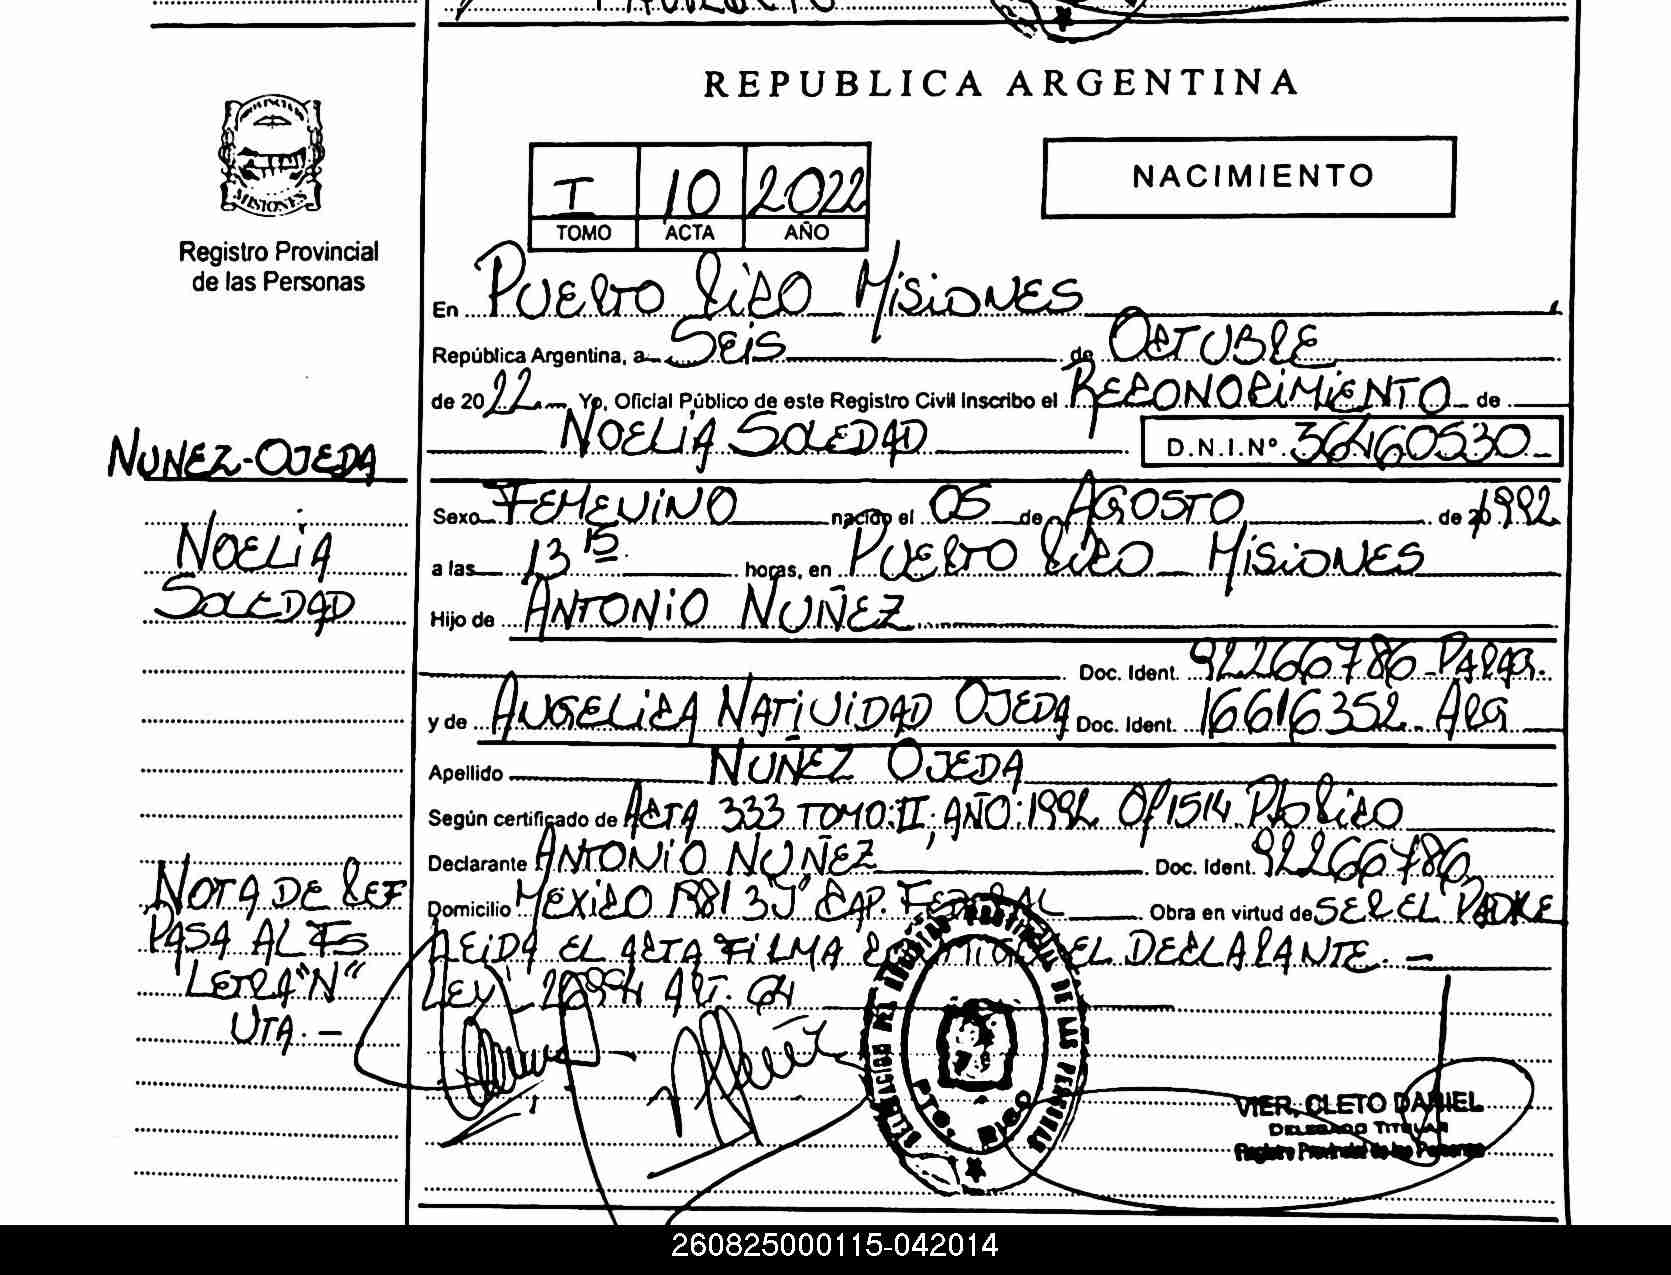 REPUBLICA ARGENTINA
MISIONES
Registro Provincial
de las Personas
I 10 2022
TOMO ACTA AÑO
NACIMIENTO
En PUERTO RICO MISIONES
República Argentina, a SEIS de OCTUBRE
de 2022 Yo, Oficial Público de este Registro Civil Inscribo el RECONOCIMIENTO de
NOELIA SOLEDAD D.N.I.Nº. 36460530
NUÑEZ-OJEDA
NOELIA
SOLEDAD
Sexo FEMENINO nacido el 05 de AGOSTO de 20 1992
a las 13 15 horas, en PUERTO RICO - MISIONES
Hijo de ANTONIO NUÑEZ
Doc. Ident. 92266786-PARAG.
y de ANGELICA NATIVIDAD OJEDA Doc. Ident. 16616352. ARG
Apellido NUÑEZ OJEDA
Según certificado de ACTA 333 TOMO:II; AÑO:1992 Of 1514 Pto RICO
Declarante ANTONIO NUÑEZ Doc. Ident. 92266786
Domicilio MEXICO 1381 3J° CAP. FEDERAL Obra en virtud de SER EL PADRE
LEIDA EL ACTA FILMA EL DECLARANTE.-
LEY 26994 ART. 64
NOTA DE REF
PASA AL FS
LETRA "N"
UTA.-
DELEGACION DEL REGISTRO PROVINCIAL DE LAS PERSONAS
PTO. RICO
VIER, CLETO DANIEL
DELEGADO TITULAR
Registro Provincial de las Personas
260825000115-042014